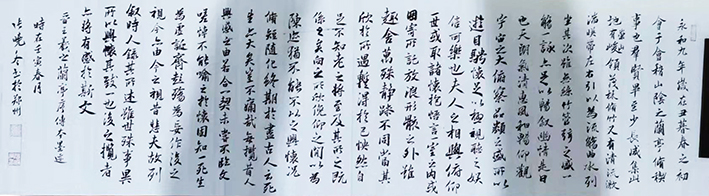 永和九年歲在癸丑暮春之初
會于會稽山陰之蘭亭脩禊
事也羣賢畢至少長咸集此
地有峻領茂林脩竹又有清流激
湍暎帶左右引以為流觴曲水列
坐其次雖無絲竹管弦之盛一
觴一詠亦足以暢敘幽情是日
也天朗氣清惠風和暢仰觀
宇宙之大俯察品類之盛所以
遊目騁懷足以極視聽之娛
信可樂也夫人之相與俯仰
一世或取諸懷抱悟言一室之內或
因寄所託放浪形骸之外雖
趣舍萬殊靜躁不同當其
欣於所遇蹔得於己怏然自
足不知老之將至及其所之既
係之矣向之所欣俛仰之間以為
陳迹猶不能不以之興懷況
脩短隨化終期於盡古人云死
生亦大矣豈不痛哉每攬昔人
興感之由若合一契未嘗不臨文
嗟悼不能喻之於懷固知一死生
為虛誕齊彭殤為妄作後之
視今亦由今之視昔悲夫故列
敘時人錄其所述雖世殊事異
所以興懷其致一也後之攬者
亦將有感於斯文
晉王羲之蘭亭序傳本墨迹
時在壬寅春月
於鄭州